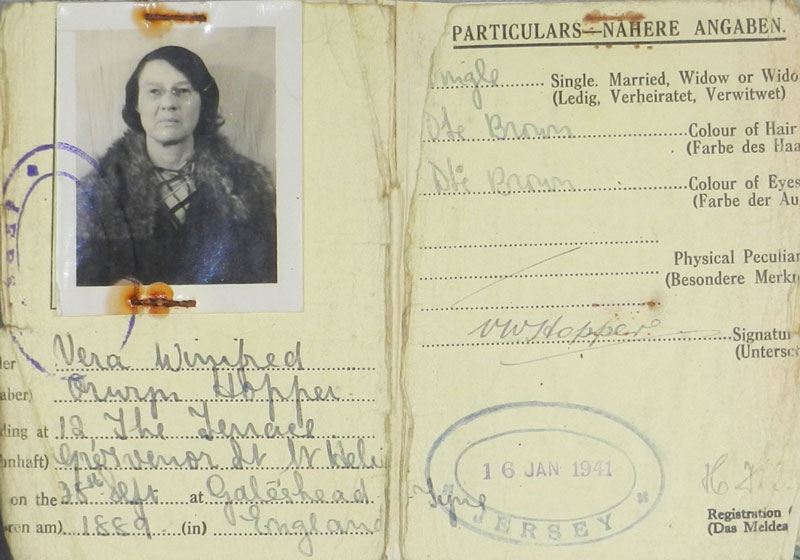 Vera Winifred
Hopper
ding at 12 The Terrace
nhaft) Grosvenor St St Heli
on the 28th Sept at Gateshead
ren am) 1889 (in) England
Tyne
PARTICULARS—NÄHERE ANGABEN.
ingle Single. Married, Widow or Wido
(Ledig, Verheiratet, Verwitwet)
Brown Colour of Hair
(Farbe des Haa
Brown Colour of Eyes
(Farbe der Au
Physical Peculiar
(Besondere Merkm
VW Hopper Signatur
(Untersc
16 JAN 1941
JERSEY
Registration
(Das Meldea